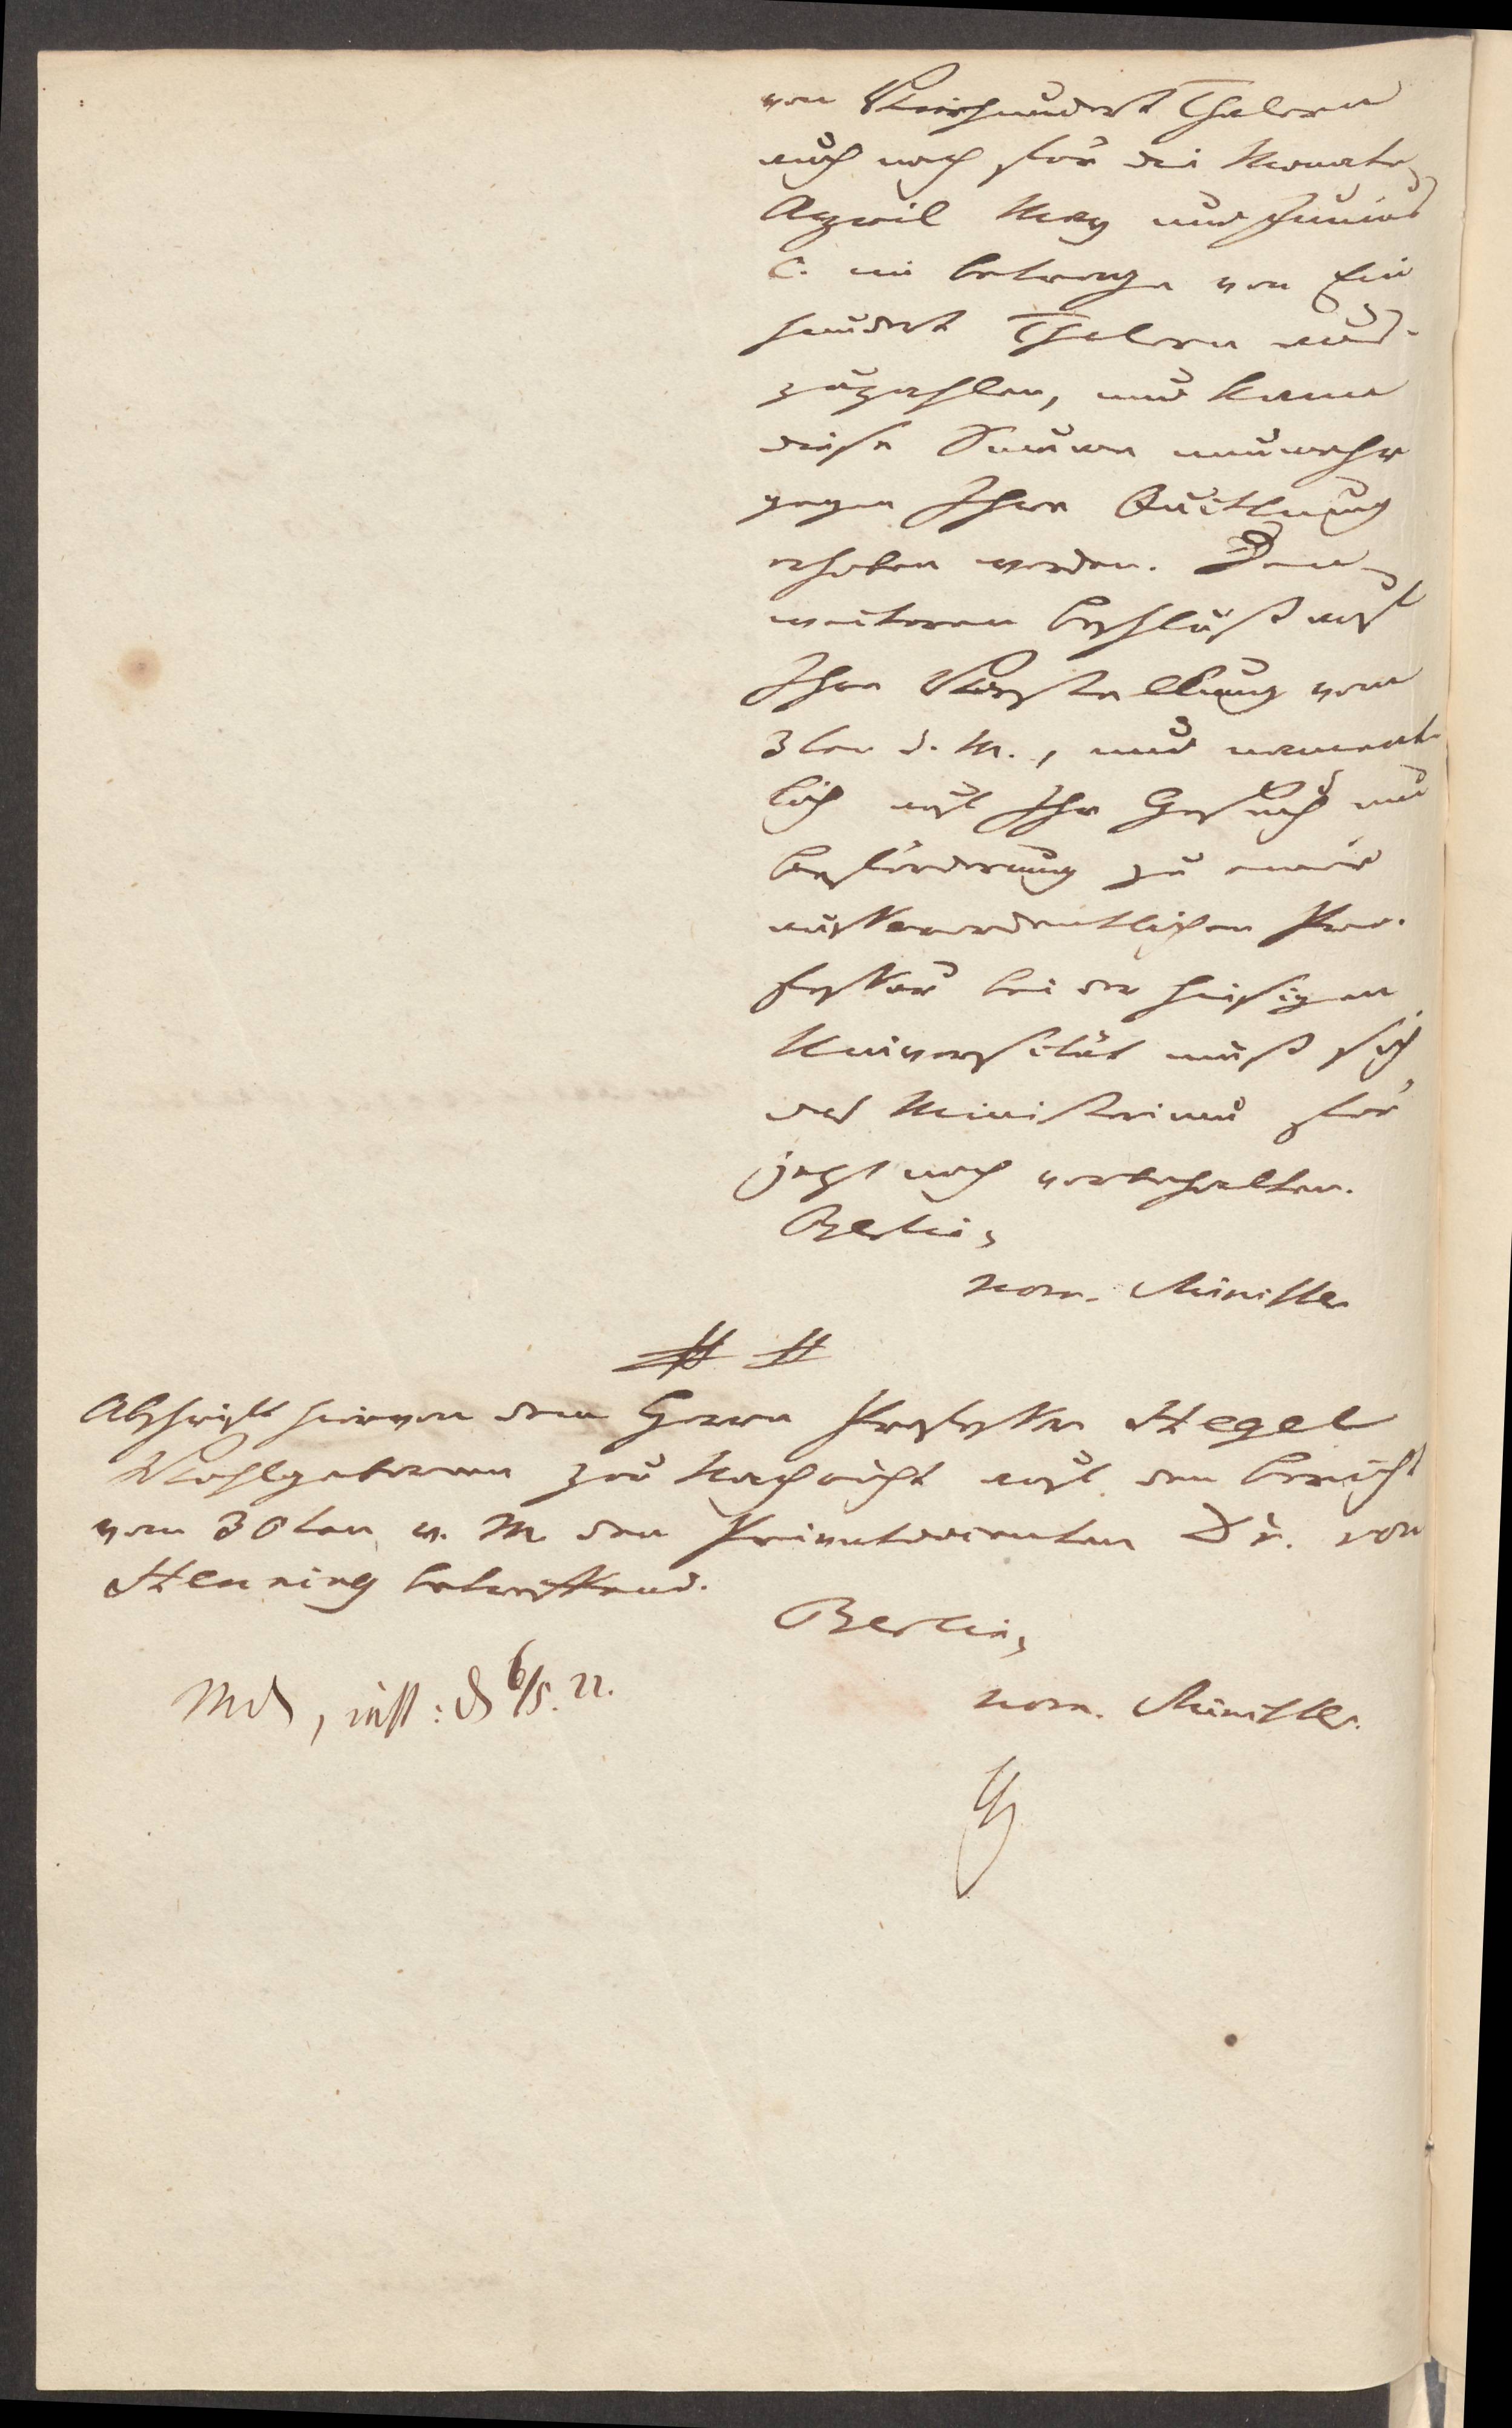 von Vierhundert Thalern
auch noch für die Monate
April May und Junius
c. im Betrage von Ein
hundert Thalern aus-
zuzahlen, und kann
diese Summe nunmehr
gegen Ihre Quittung
erhoben werden. Den
weiteren Beschluß auf
Ihre Vorstellung vom
3ten d. M., und nament-
lich auf Ihr Gesuch um
Beförderung zu einer
außerordentlichen Pro-
fessur bei der hiesigen
Universität muß sich
das Ministerium für
jetzt noch vorbehalten.
Berlin,
nom. Ministe.
Abschrift hiervon dem Herrn Professor Hegel
Wohlgeboren zur Nachricht auf den Bericht
vom 30ten v. M. den Privatdocenten Dr. von
Henning betreffend.
Berlin,
nom. Ministe.
6/5. 22.